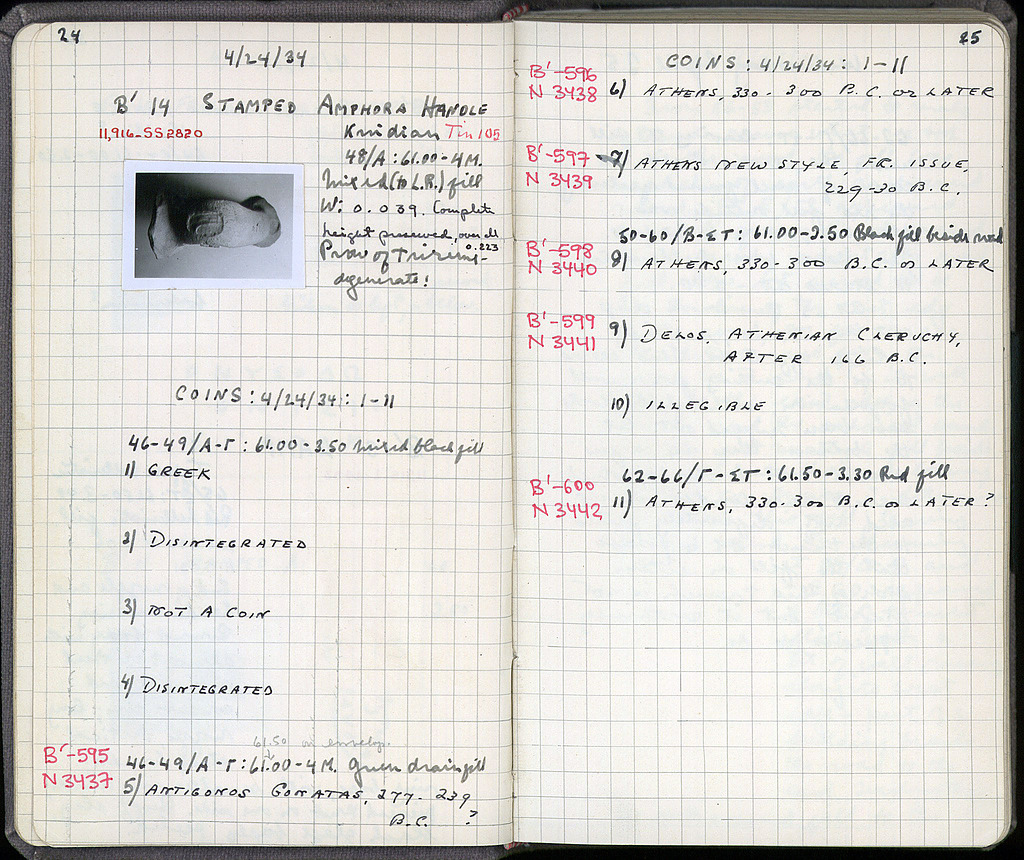 24
4/24/34
B' 14 STAMPED AMPHORA HANDLE
11,916-SS2820
Knidian Tin 105
48/A : 61.00-4M.
Mixed (to L.R.) fill
W: 0.039. Complete
height preserved, over all
0.223
Prow of Trireme-
degenerate!
COINS: 4/24/34: 1-11
46-49/A-Γ: 61.00-3.50 mixed black fill
1) GREEK
2) DISINTEGRATED
3) NOT A COIN
4) DISINTEGRATED
61.50 on envelop.
B'-595
N 3437
46-49/A-Γ: 61.00-4M. Green drain fill
5) ANTIGONOS GONATAS, 277-239
B.C. ?
25
COINS: 4/24/34: 1-11
B'-596
N 3438
6) ATHENS, 330-300 B.C. or LATER
B'-597
N 3439
7) ATHENS NEW STYLE, FR. ISSUE,
229-30 B.C.
50-60/B-ΣΤ: 61.00-2.50 Black fill beside road
B'-598
N 3440
8) ATHENS, 330-300 B.C. or LATER
B'-599
N 3441
9) DELOS, ATHENIAN CLERUCHY,
AFTER 166 B.C.
10) ILLEGIBLE
62-66/Γ-ΣΤ: 61.50-3.30 Red fill
B'-600
N 3442
11) ATHENS, 330-300 B.C. or LATER?